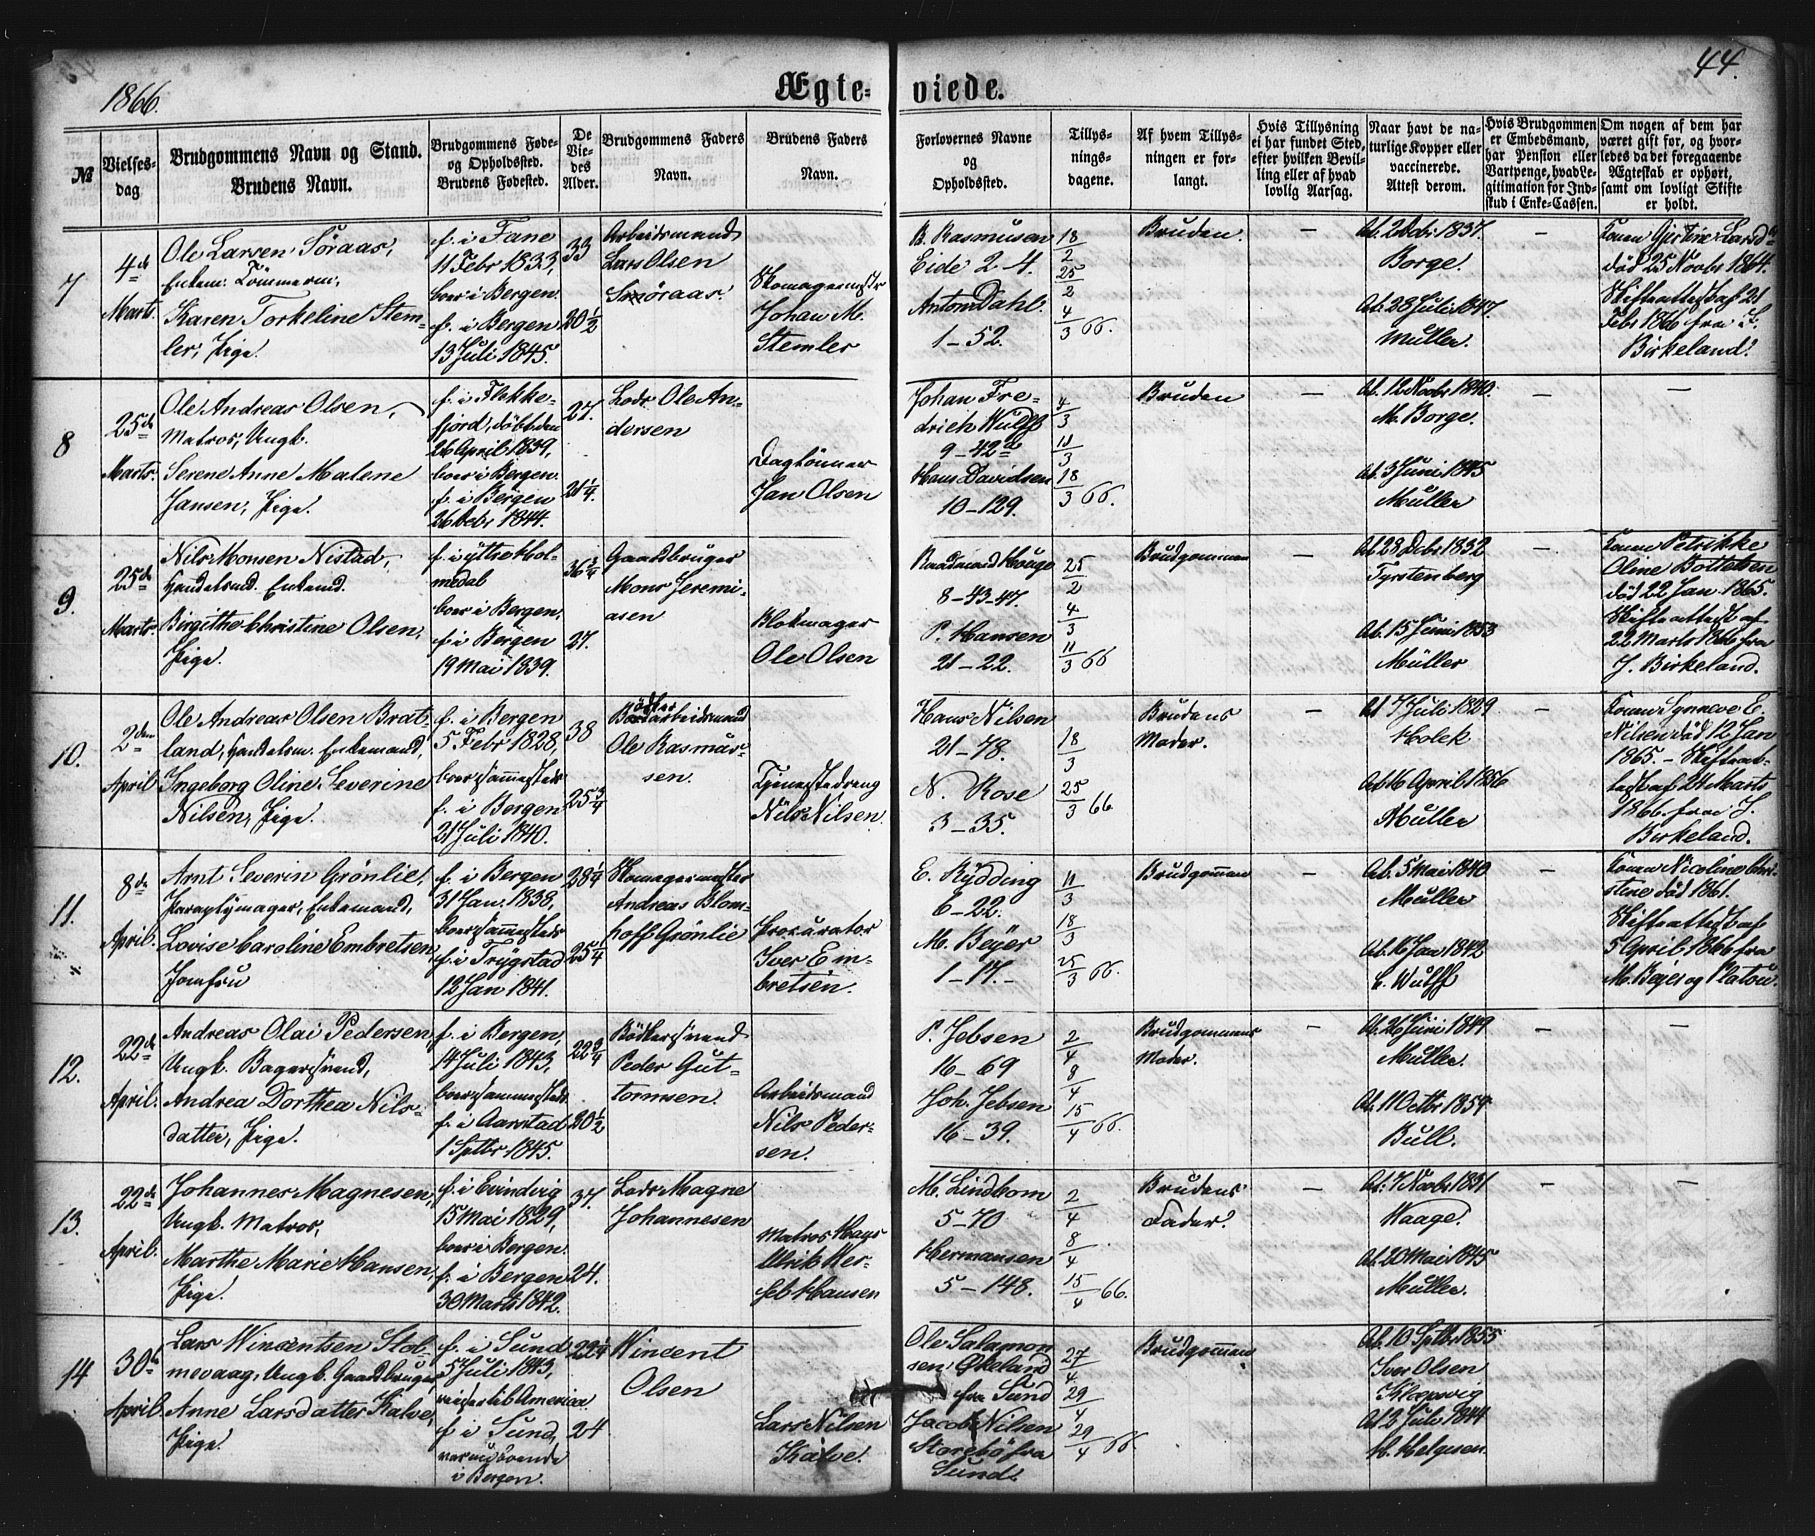 1866.
Ægte-
viede.
44.
№
Vielses-
dag
Brudgommens Navn og Stand.
Brudens Navn.
Brudgommens Føde-
og Opholdssted.
Brudens Fødested.
De
Vie-
des
Alder.
Brudgommens Faders
Navn.
Brudens Faders
Navn.
Forlovernes Navne
og
Opholdssted.
Tillys-
nings-
dagene.
Af hvem Tillys-
ningen er for-
langt.
Hvis Tillysning
ei har fundet Sted,
efter hvilken Bevil-
ling eller af hvad
lovlig Aarsag.
Naar havt de na-
turlige Kopper eller
vaccinerede.
Attest derom.
Hvis Brudgommen
er Embedsmand,
har Pension eller
Vartpenge, hvad Le-
gitimation for Ind-
skud i Enke-Cassen.
Om nogen af dem har
været gift før, og hvor-
ledes da det foregaaende
Ægteskab er ophørt,
samt om lovligt Skifte
er holdt.
7
4de
Marts.
Ole Larsen Søraas,
Enkem: Tømmerm:
Karen Torkeline Stem-
ler, Pige.
f. i Fane
11 Febr 1833,
boer i Bergen.
f. i Bergen
13 Juli 1845.
33
20 1/2
Arbeidsmand
Lars Olsen
Søraas.
Skomagermstr
Johan M.
Stemler
B. Rasmusen
Eide 2-4.
Anton Dahl.
1-52.
18/2
25/2
4/3 66.
Bruden.
–
Borge.
At. 28 Juli 1847.
Müller.
–
død 25 Novbr 1864.
Skifteattest af 21
Febr 1866 fra J.
Birkeland.
8
25de
Marts.
Ole Andreas Olsen,
Matros, Ungk.
Serene Anne Malene
Jansen, Pige.
f. i Flekke-
fjord, døbt den
26 April 1839,
boer i Bergen.
f. i Bergen
26 Debr 1844.
27.
21 1/4.
Lods Ole An-
dersen
Dagtønner
Jan Olsen
Johan Fre-
drich Wulff
9-42a
Hans Davidsen
10-129.
4/3
11/3
18/3 66.
Bruden
–
At. 12 Novbr 1840.
M. Borge.
At. 3 Juni 1845
Müller
–
–
9.
25de
Marts.
Nils Monsen Nistad,
Handelsmd. Enkemd.
Birgithe Christine Olsen,
Pige.
f. i Ytre Hol-
medal
boer i Bergen,
f. i Bergen
19 Mai 1839.
36 3/4
27.
Gaardbruger
Mons Jeremi-
asen
Blokmager
Ole Olsen
8-43-47.
P. Hansen
21-22.
25/2
4/3
11/3 66
Brudgommen
–
At. 28 Debr 1832
Fyrstenberg
At. 15 Juni 1853
Müller
–
Konen Petrikke
Oline Bottelsen
død 22 Jan 1865.
Skifteattest af
22 Marts 1866 fra
J. Birkeland.
10.
2den
April
Ole Andreas Olsen Brat-
land, Handelsm. Enkemand,
Ingeborg Oline Severine
Nilsen, Pige.
f. i Bergen
5 Febr 1828,
boer sammesteds
f. i Bergen
21 Juli 1840.
38
25 3/4
Ole Rasmus-
sen.
Tjenestedreng
Nils Nilsen
Hans Nilsen
21-78.
N. Rose
3-35.
18/3
25/3 66
Brudens
Moder.
–
At 7 Juli 1829
Holck
At 16 April 1856
Müller
–
Konen Synneve E.
Nilsen død 12 Jan
1865. – Skifteat-
test af 24 Marts
1866. fra J.
Birkeland.
11.
8de
April.
Arnt Severin Grønlie,
Paraplymager, Enkemand,
Lovise Caroline Embretsen,
Jomfru
f. i Bergen
31 Jan. 1838,
boer sammesteds
f. i Trygstad
12 Jan 1841.
28 1/4
25 1/4
Skomagermester
Andreas Blom-
hoff Grønlie
Procurator
Iver Em-
bretsen.
E. Rydding
6-22.
M. Beyer
1-17.-
11/3
18/3
25/3 66.
Brudgommen
–
At. 5 Mai 1840
Müller
At. 16 Jan 1842
C. Wulff
–
Konen Nicoline Chri-
stine død 1861.
Skifteattest af
5 April 1866 fra
M. Beyer og Platou.
12.
22de
April.
Andreas Olai Pedersen,
Ungk. Bagersvend,
Andrea Dorthea Nils-
datter, Pige.
f. i Bergen,
14 Juli 1843,
boer sammesteds.
f. i Aarstad
1 Septbr 1845.
22 3/4
20 1/2
Bødkersvend
Peder Gut-
tormsen
Arbeidsmand
Nils Peder-
sen.
P. Jebsen
16-69
Joh. Jebsen
16-39.
2/4
8/4
15/4 66.
Brudgommens
Moder.
–
Müller
At. 11 Octbr 1854
Bull.
–
–
13.
22de
April.
Johannes Magnesen,
Ungk. Matros,
Marthe Marie Hansen,
Pige.
f. i Evindvig
15 Mai 1829,
boer i Bergen.
f. i Bergen
30 Marts 1842.
37.
24.
Lods Magne
Johannesen
Matros Hans
Ulrik Wer-
feldt Hansen
M. Lindbom
5-70
Hermansen
5-148.
2/4
8/4
15/4 66.
Brudens
Fader.
–
At. 7 Novbr 1831
Waage.
At. 20 Mai 1845
Müller.
–
–
14
30te
April
Lars Wincentsen Stol-
mevaag, Ungk. Gaardbruger
Anne Larsdatter Kalve,
Pige.
f. i Sund
5 Juli 1843,
reiser til America
f. i Sund,
værendeboende
i Bergen.
22 1/4
24
Wincent
Olsen
Lars Nilsen
Kalve.
Ole Salamon
sen Økeland
fra Sund
Jacob Nilsen
Storebø fra
Sund.
27/4
29/4
29/4 66.
Brudgommen
At. 10 Septbr 1855
Iver Olsen
Kleppsvig
At 2 Juli 1844
H. Helgesen